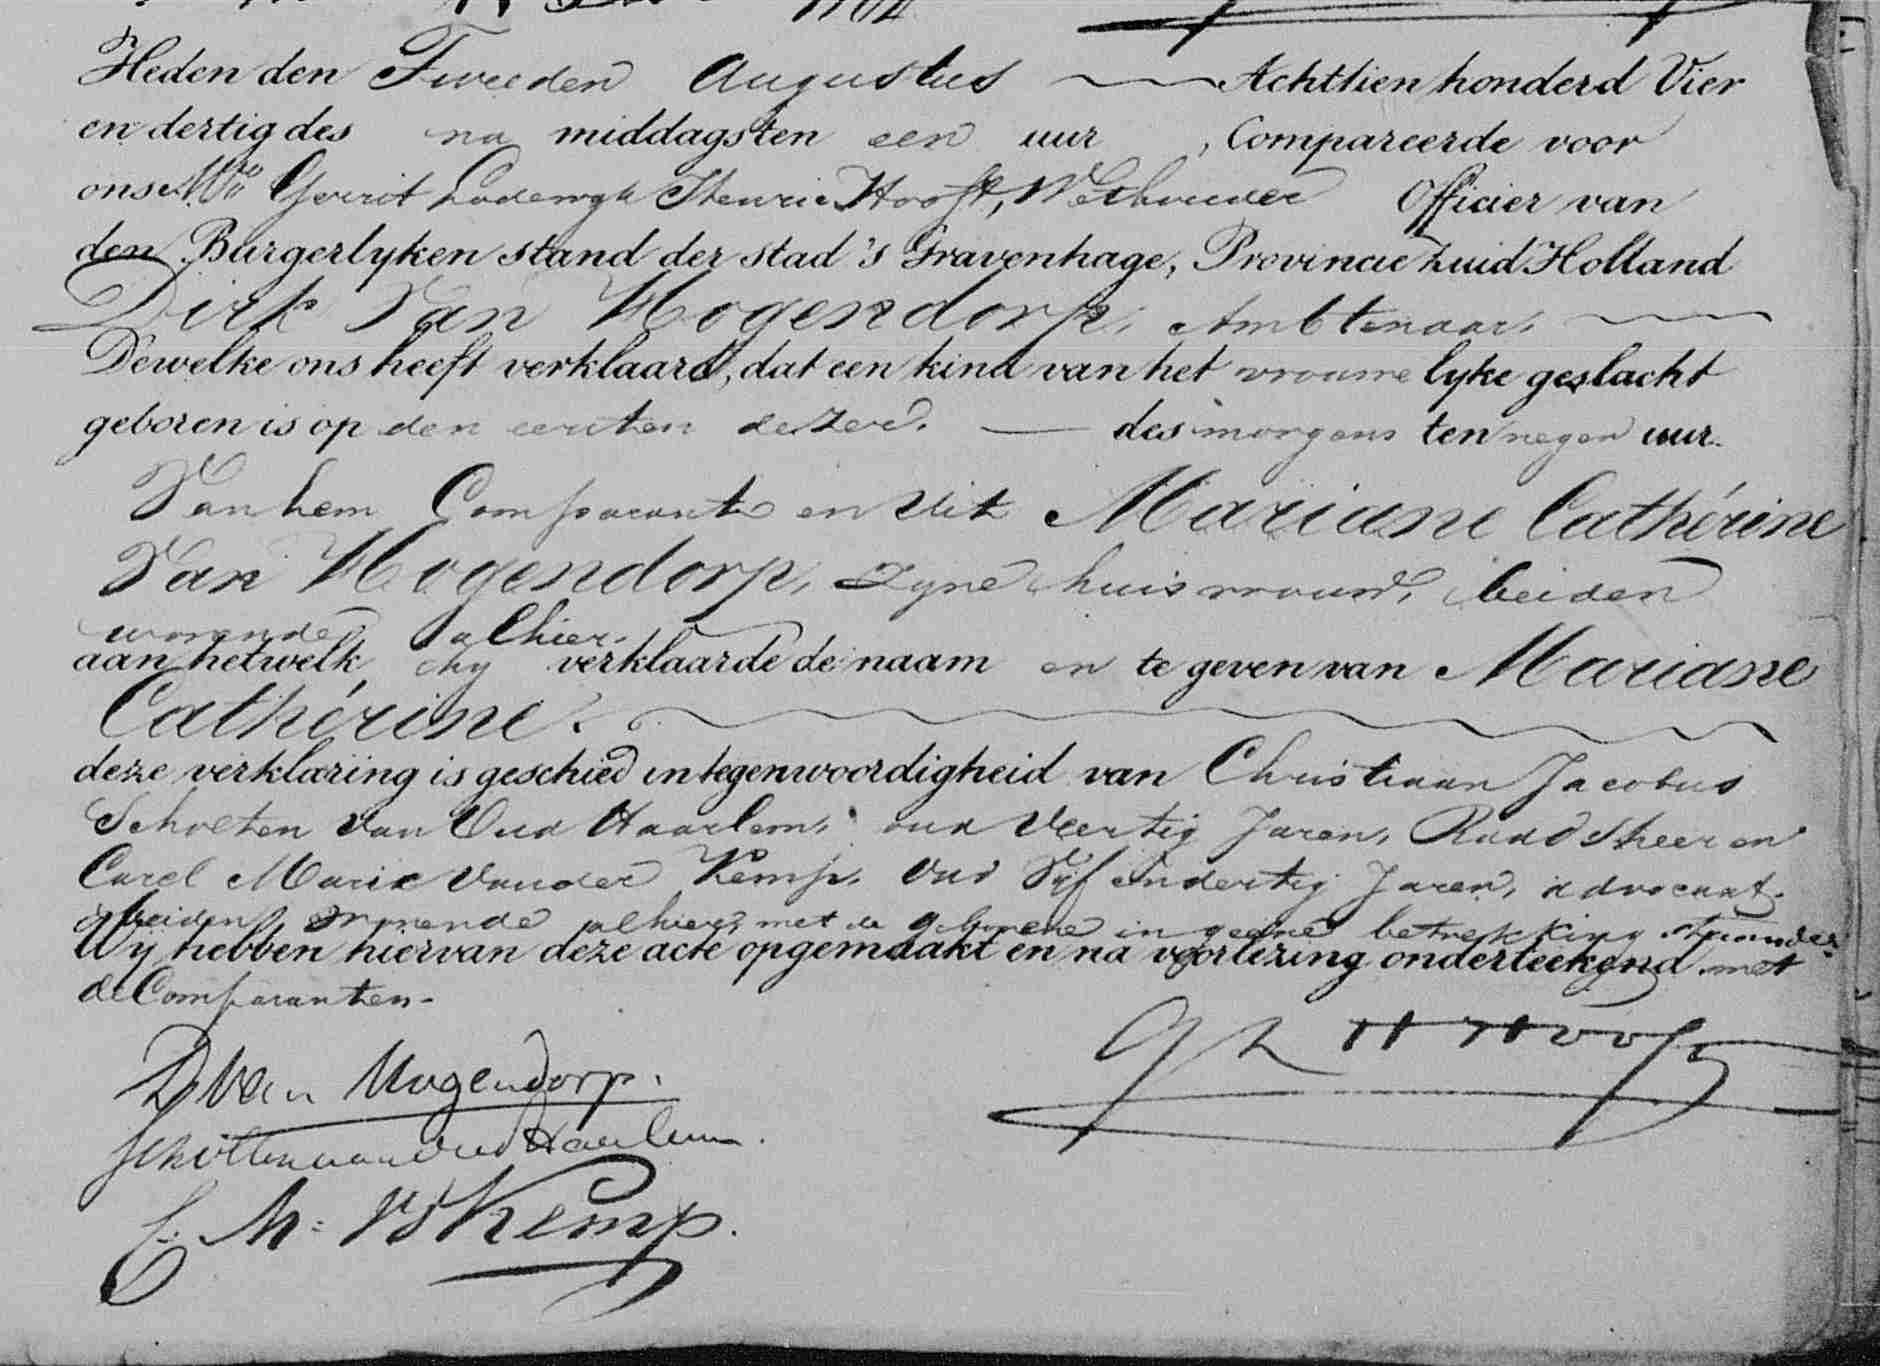 Heden den Tweeden Augustus Achttien honderd Vier
en dertig des na middags ten een uur, Compareerde voor
ons Mr. Gerrit Lodewyk Henrie Hooft, Wethouder Officier van
den Burgerlyken stand der stad 's Gravenhage, Provincie Zuid Holland
Dirk Van Hogendorp, Ambtenaar,
Dewelke ons heeft verklaard, dat een kind van het vrouwelyke geslacht
geboren is op den eersten dezer. des morgens ten negen uur.
Van hem Comparant en uit Mariane Cathérine
Van Hogendorp, zyne huisvrouw, beiden
wonende alhier.
aan hetwelk hy verklaarde de naam en te geven van Mariane
Cathérine.
deze verklaring is geschied in tegenwoordigheid van Christiaan Jacobus
Scholten van Oud Haarlem, oud Veertig Jaren, Raadsheer en
Carel Marie Vander Kemp, oud Vyf en dertig Jaren, advocaat
beiden wonende alhier, met de geborene in geene betrekking staande.
Wy hebben hiervan deze acte opgemaakt en na voorlezing onderteekend met
de Comparanten.
D Van Hogendorp.
G L H Hooft
Scholten van Oud Haarlem.
C. M. vd Kemp.